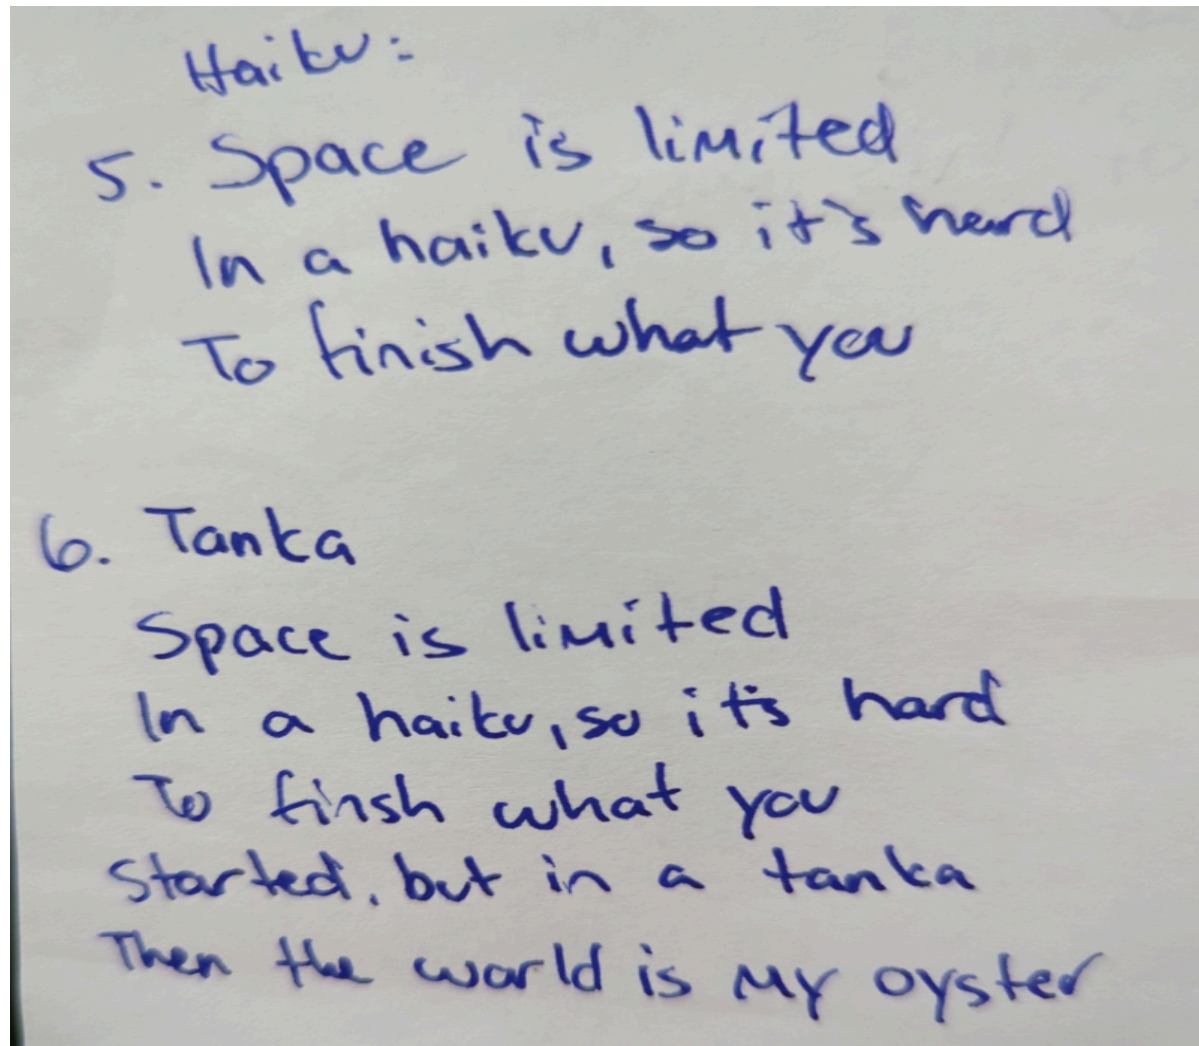 Haiku:
5. Space is limited
In a haiku, so it's hard
To finish what you
6. Tanka
Space is limited
In a haiku, so it's hard
To finsh what you
Started, but in a tanka
Then the world is my oyster